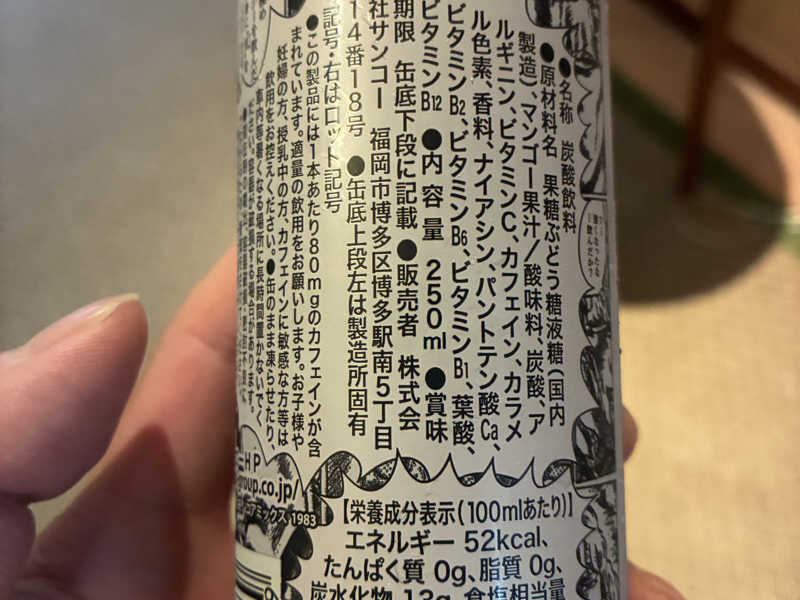 ●名称 炭酸飲料
●原材料名 果糖ぶどう糖液糖(国内
製造)、マンゴー果汁/酸味料、炭酸、ア
ルギニン、ビタミンC、カフェイン、カラメ
ル色素、香料、ナイアシン、パントテン酸Ca、
ビタミンB2、ビタミンB6、ビタミンB1、葉酸、
ビタミンB12 ●内容量 250ml ●賞味
期限 缶底下段に記載 ●販売者 株式会
社サンコー 福岡市博多区博多駅南5丁目
14番18号 ●缶底上段左は製造所固有
記号・右はロット記号
●この製品には1本あたり80mgのカフェインが含
まれています。適量の飲用をお願いします。お子様や
妊婦の方、授乳中の方、カフェインに敏感な方等は
飲用をお控えください。●缶のまま凍らせたり、
車内等暑くなる場所に長時間置かないでく
ださい。容器が破損する場合があります。
HP
roup.co.jp/
アミックス 1983
【栄養成分表示(100mlあたり)】
エネルギー 52kcal、
たんぱく質 0g、脂質 0g、
炭水化物 13g、食塩相当量